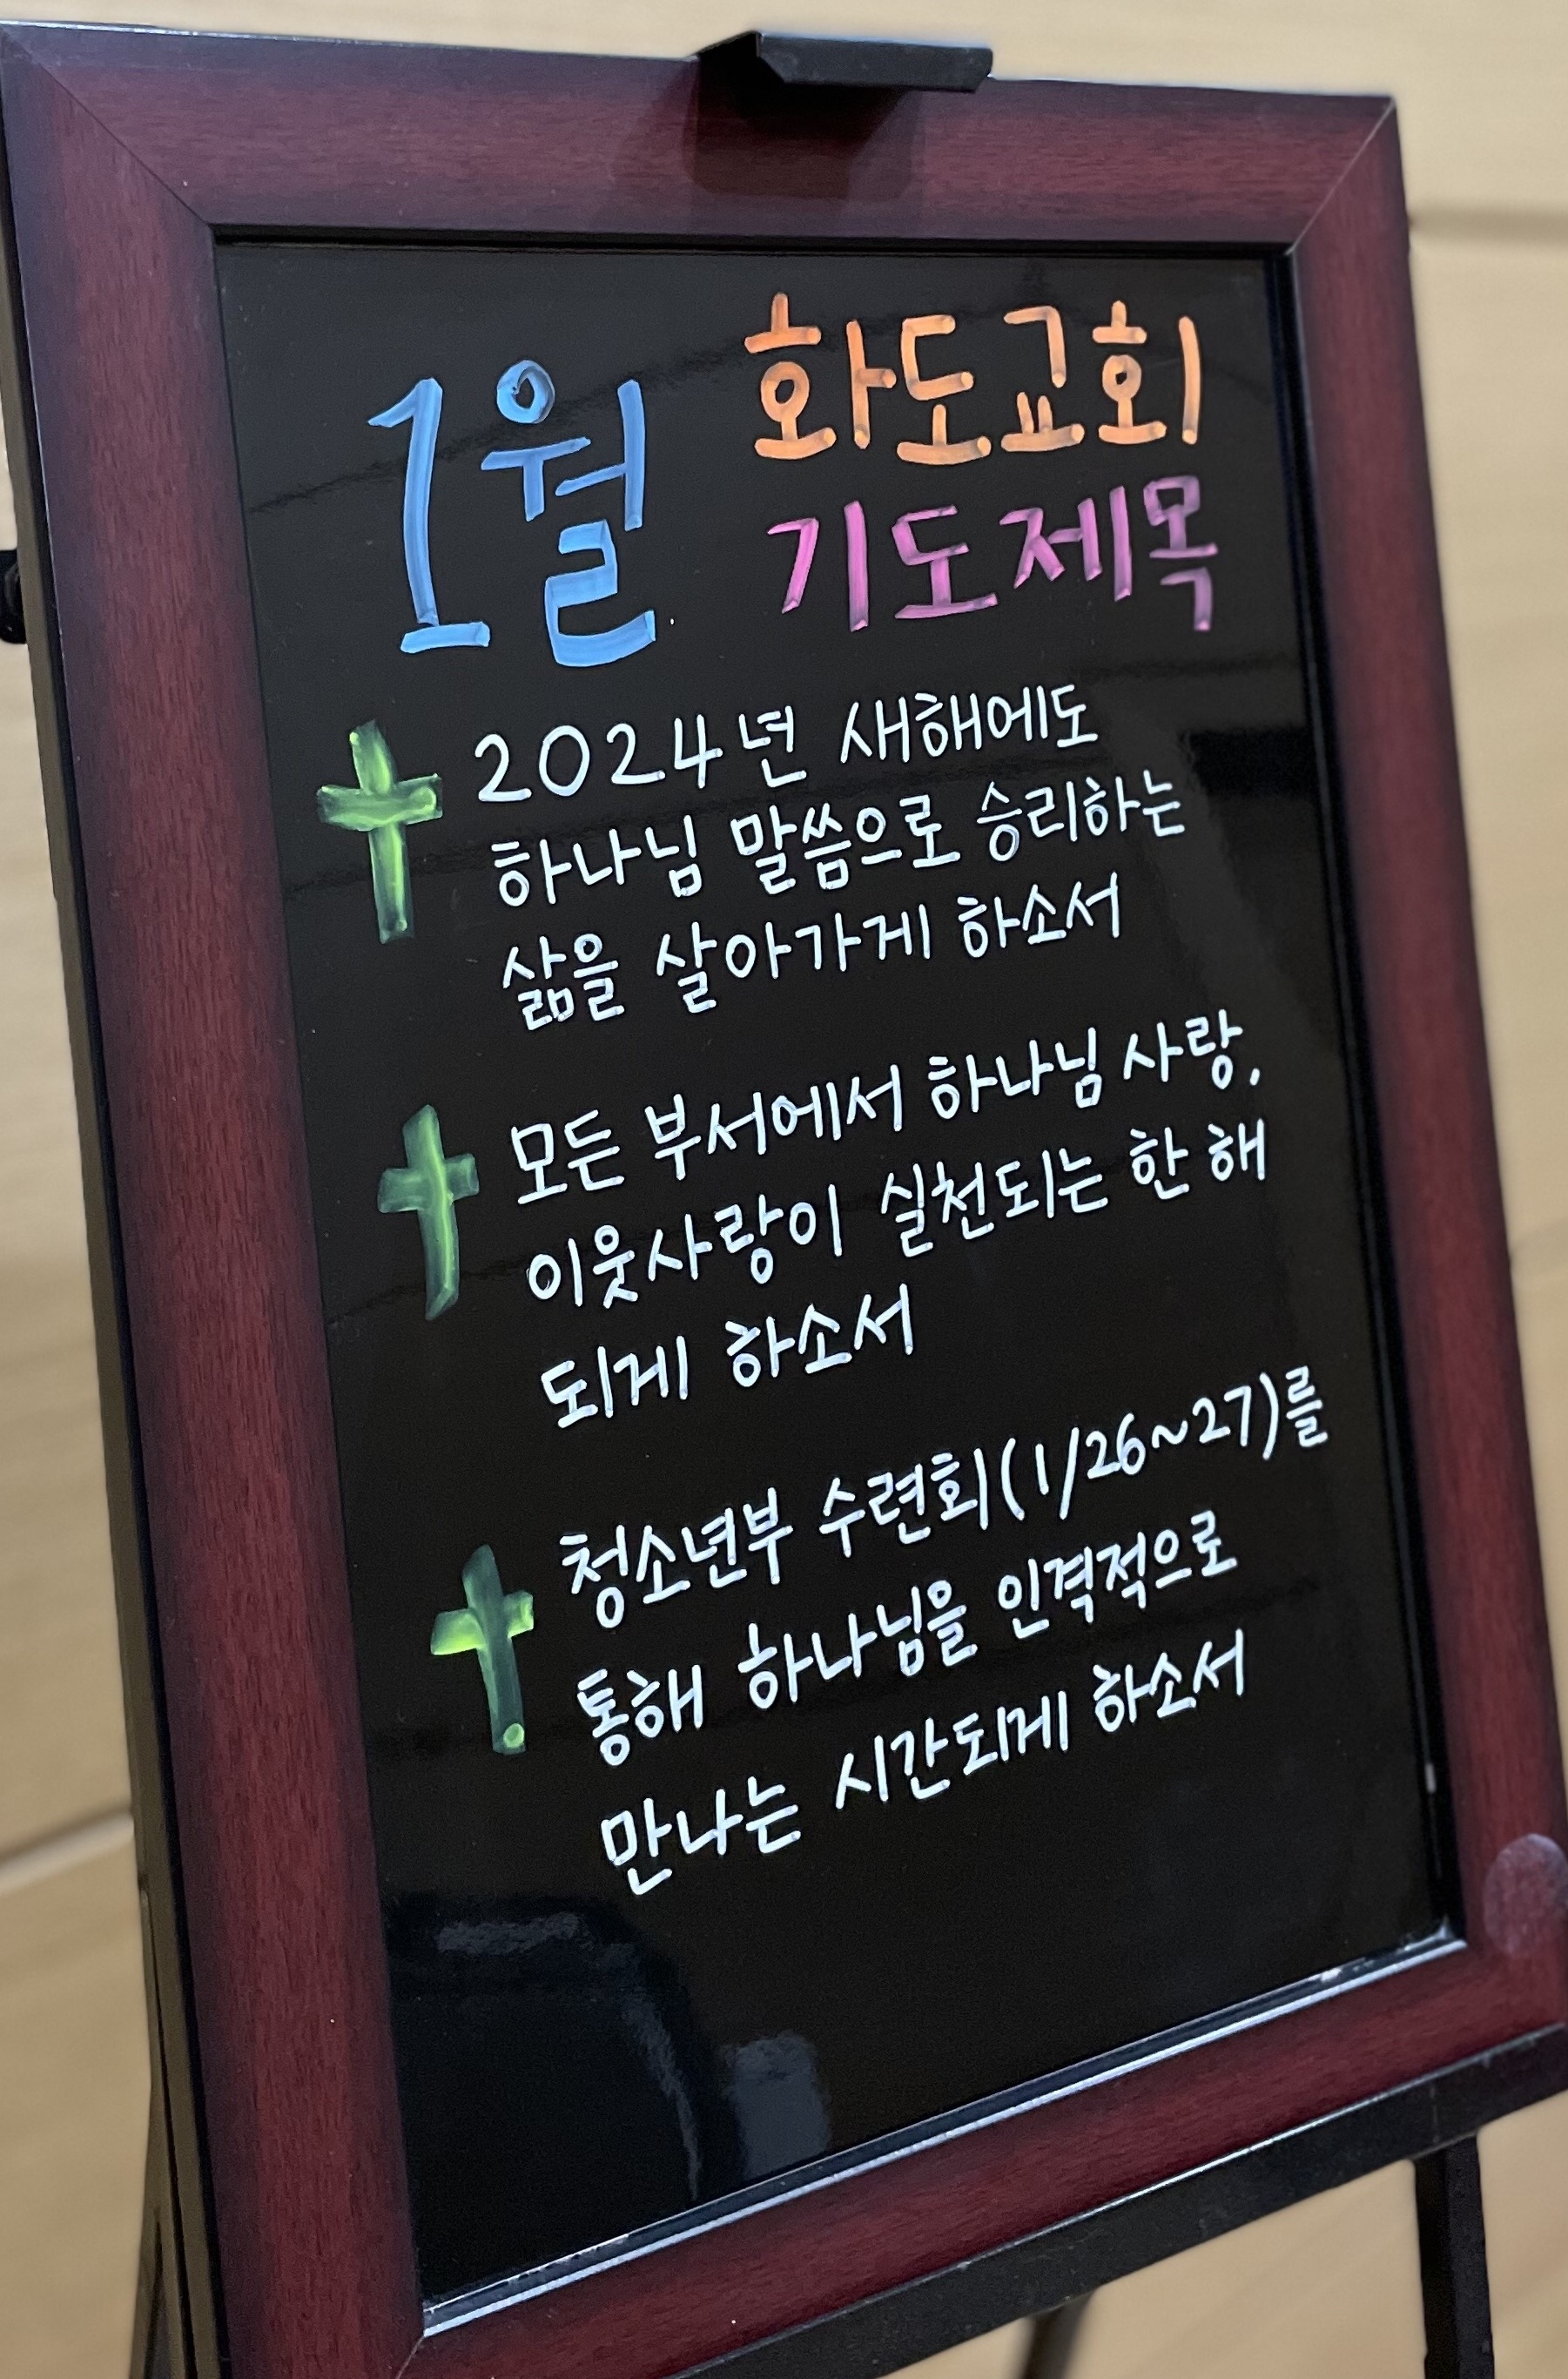 1월 화도교회
기도제목
2024년 새해에도
하나님 말씀으로 승리하는
삶을 살아가게 하소서
모든 부서에서 하나님 사랑,
이웃사랑이 실천되는 한 해
되게 하소서
청소년부 수련회(1/26~27)를
통해 하나님을 인격적으로
만나는 시간되게 하소서